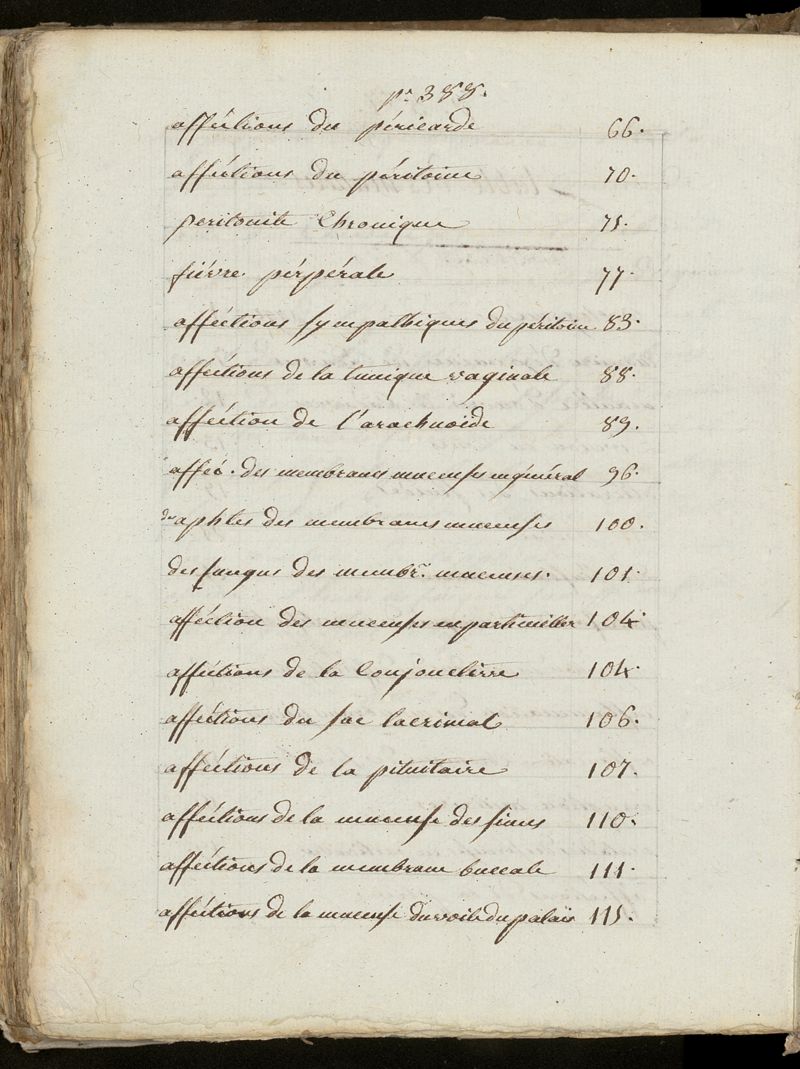 pe 388.
afféctions du péricarde 66.
afféctions du péritoine 70.
peritonite Chronique 75.
fiévre pérpérale 77.
afféctions sympathiques du péritoine 83.
afféctions de la tunique vaginale 88.
afféction de l'arachnoïde 89.
afféc. des membranes muceuses en général 96.
des aphtes des membranes muceuses 100.
des fungus des membr. muceuses. 101.
afféction des muceuses en particullier 104.
afféctions de la Conjonctive 104.
afféctions du sac lacrimal 106.
afféctions de la pituitaire 107.
afféctions de la muceuse des sinus 110.
afféctions de la membrane buccale 111.
afféctions de la muceuse du voile du palais 115.